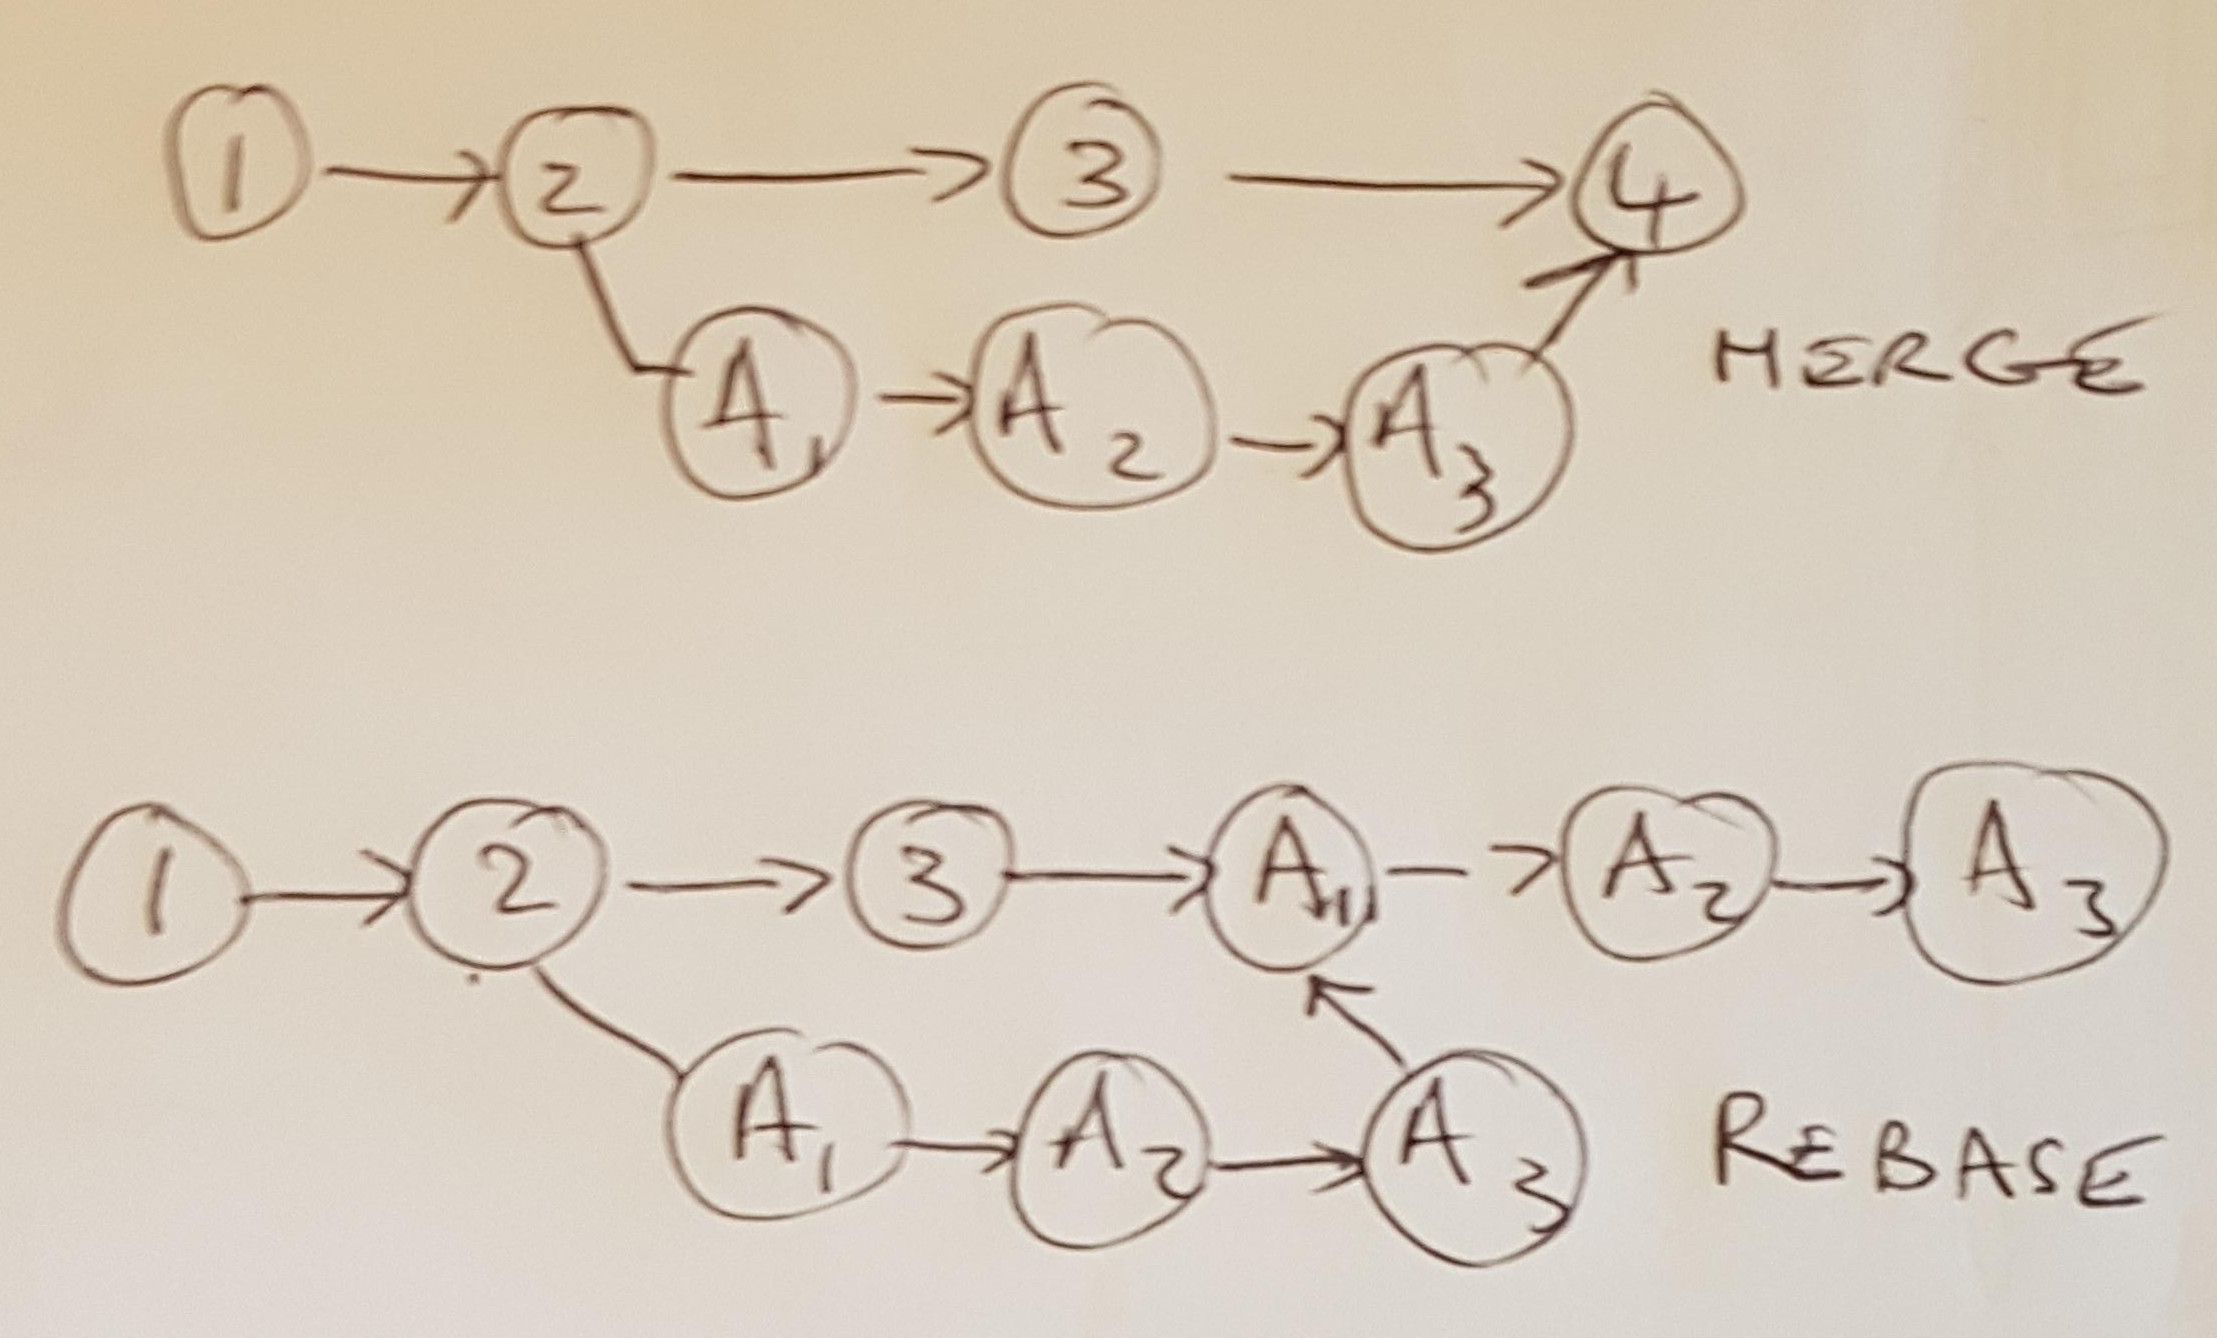 1 → 2 → 3 → 4
A1 → A2 → A3
MERGE
1 → 2 → 3 → A1 → A2 → A3
A1 → A2 → A3
REBASE